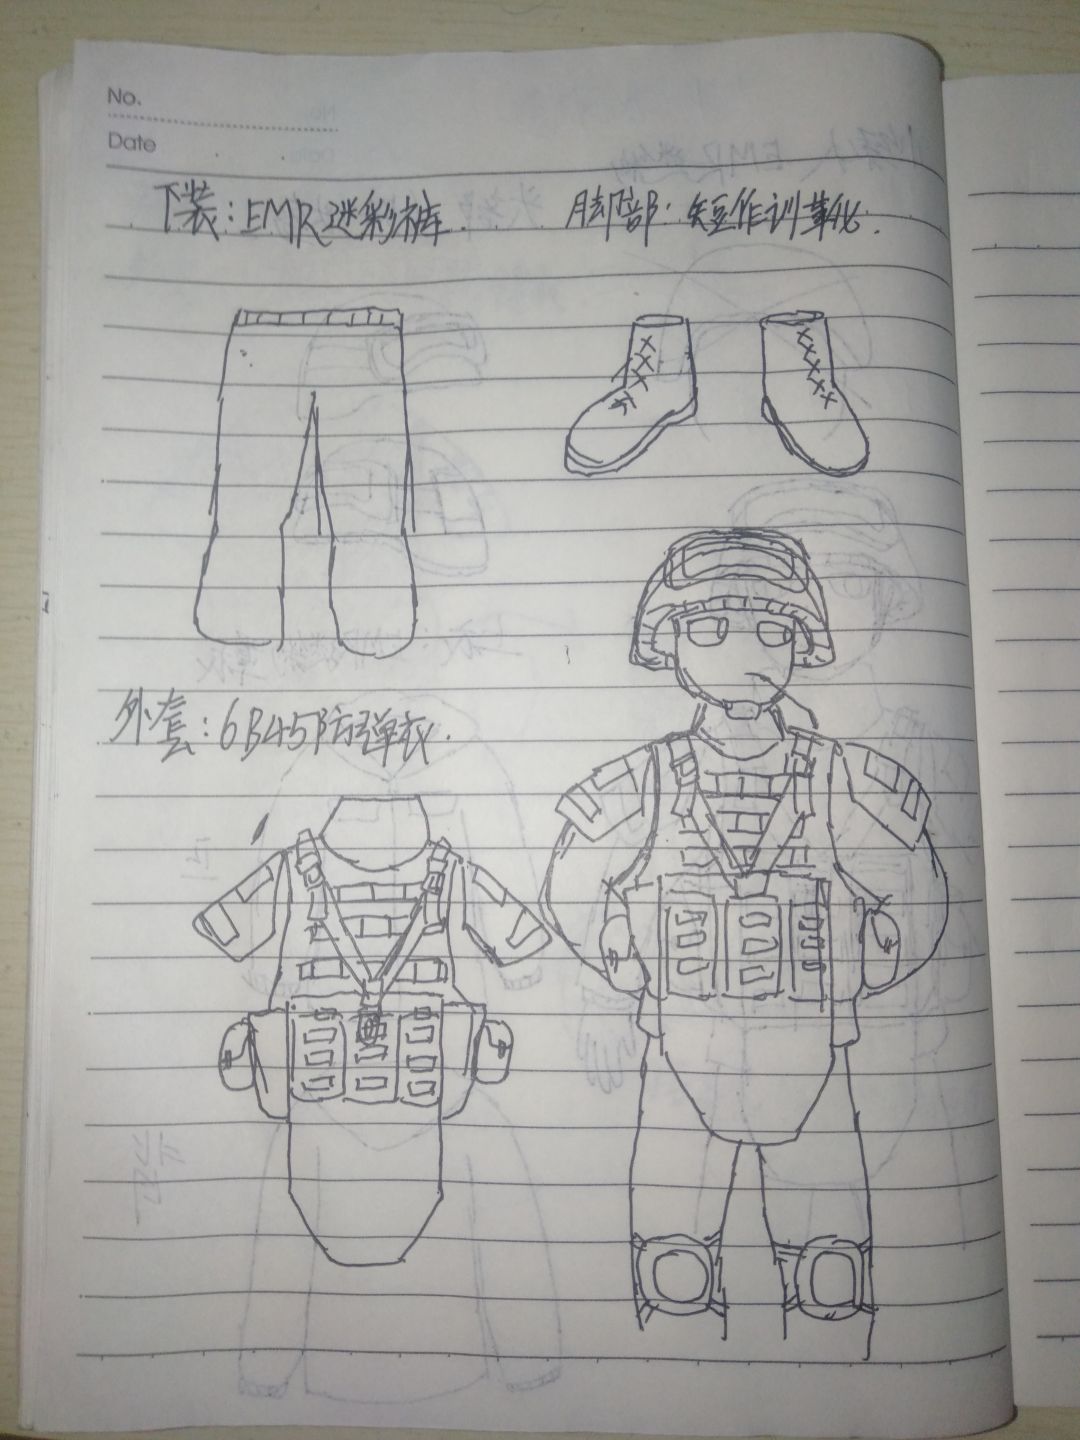 No.
Date
下装：EMR迷彩裤.
脚部：短作训革化.
外套：6B45防弹衣.